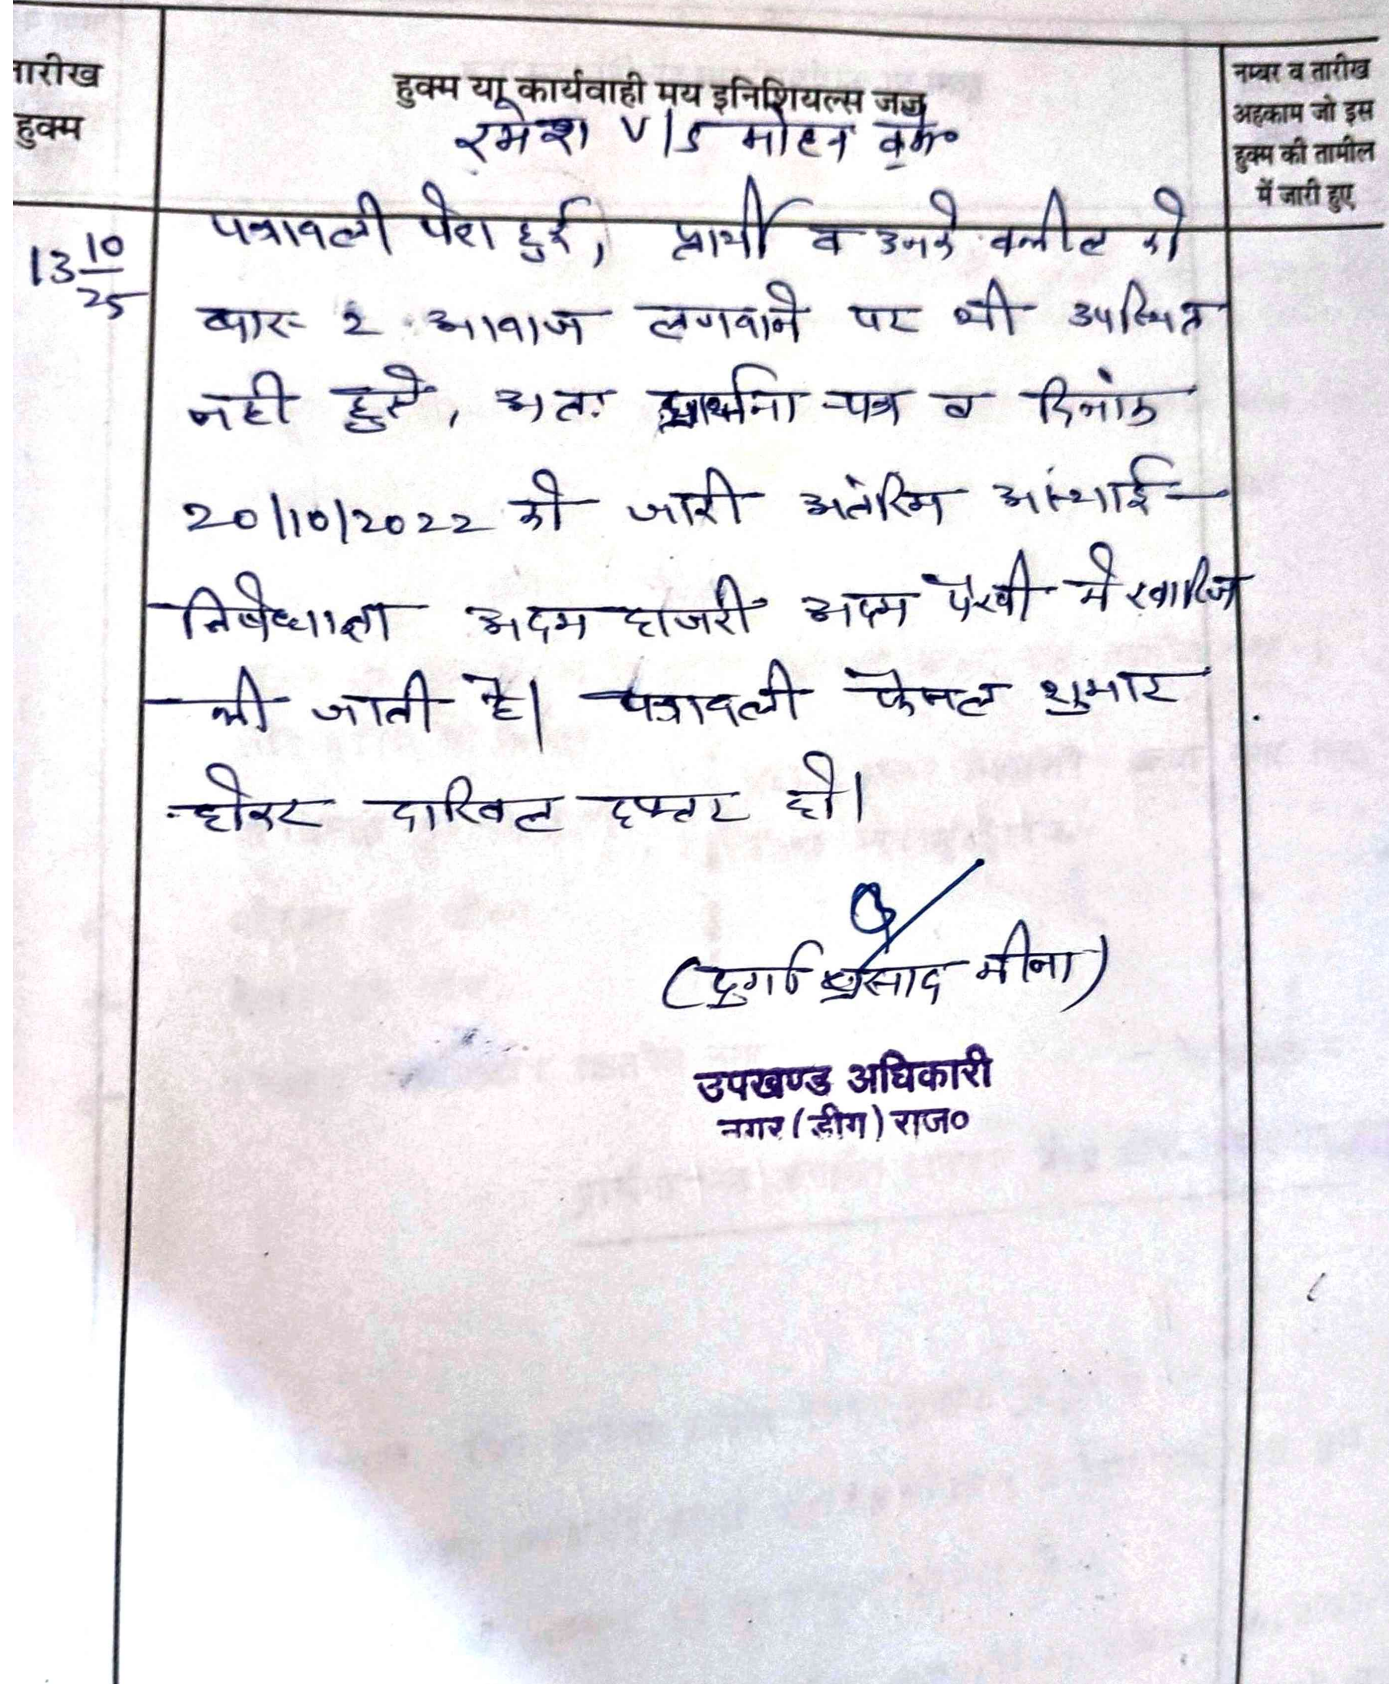 तारीख
हुक्म
हुक्म या कार्यवाही मय इनिशियल्स जज
नम्बर व तारीख
अहकाम जो इस
हुक्म की तामील
में जारी हुए
रमेश V/S मोहन वगै॰
13 10/25
पत्रावली पेश हुई, प्रार्थी व उनके वकील को
बार 2 आवाज लगवाने पर भी उपस्थित
नही हुते, अतः प्रार्थना पत्र व दिनांक
20/10/2022 को जारी अतंरिम अस्थाई
निषेधाज्ञा अदम हाजरी अदम पैरवी मे खारिज
की जाती है। पत्रावली फेसल शुमार
होकर दाखिल दफ्तर हो।
(दुर्गा प्रसाद मीना)
उपखण्ड अधिकारी
नगर (डीग) राज०